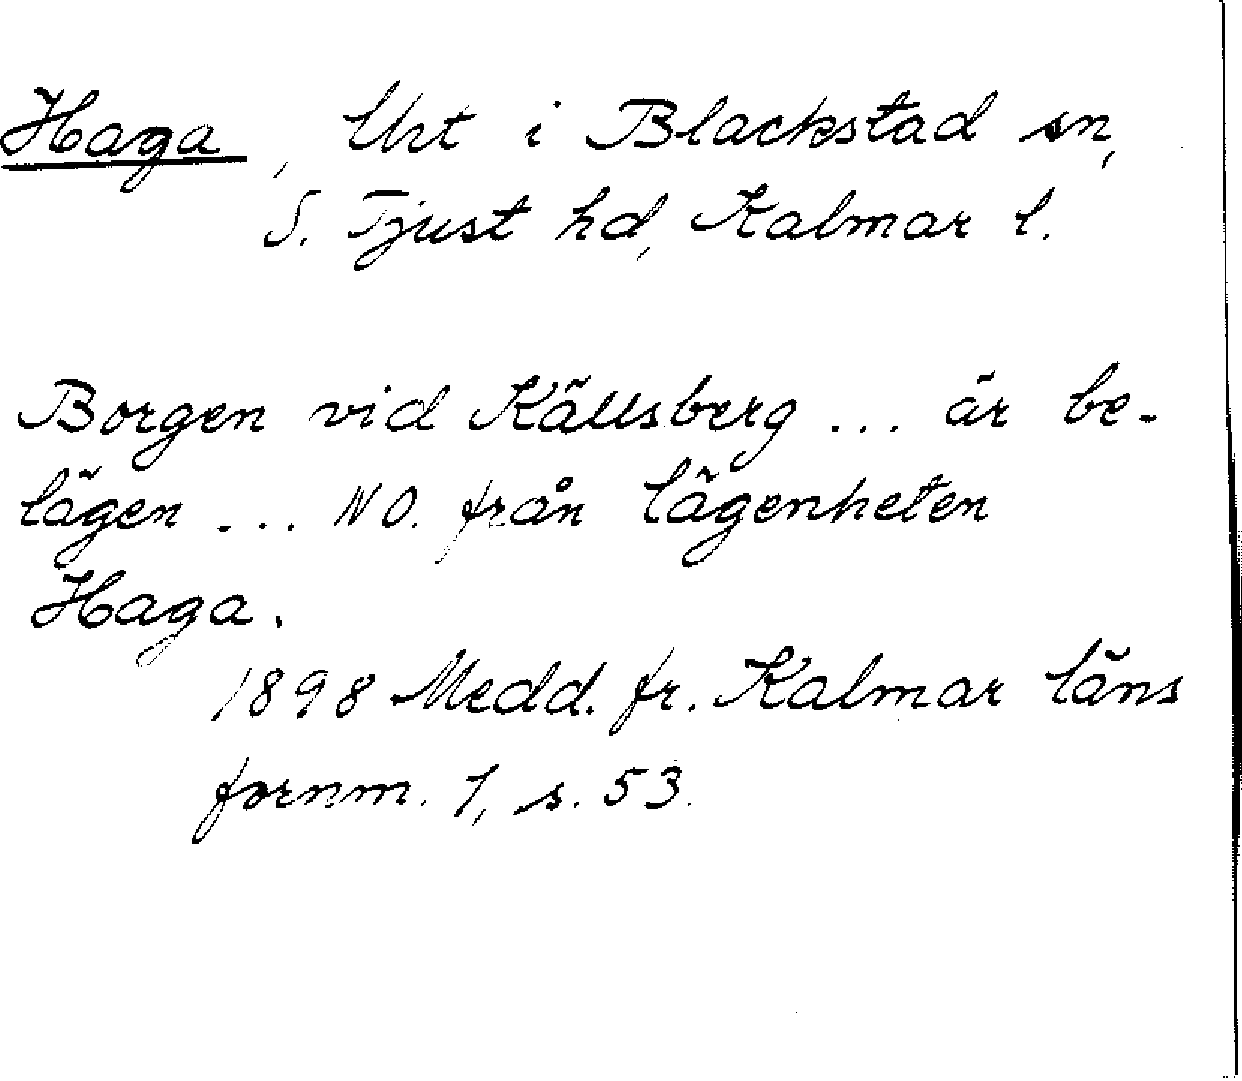 Haga, lht i Blackstad sn,
S. Tjust hd, Kalmar l.
Borgen vid Källsberg ... är be-
lägen ... NO. från lägenheten
Haga.
1898 Medd. fr. Kalmar läns
fornm. 1, s. 53.